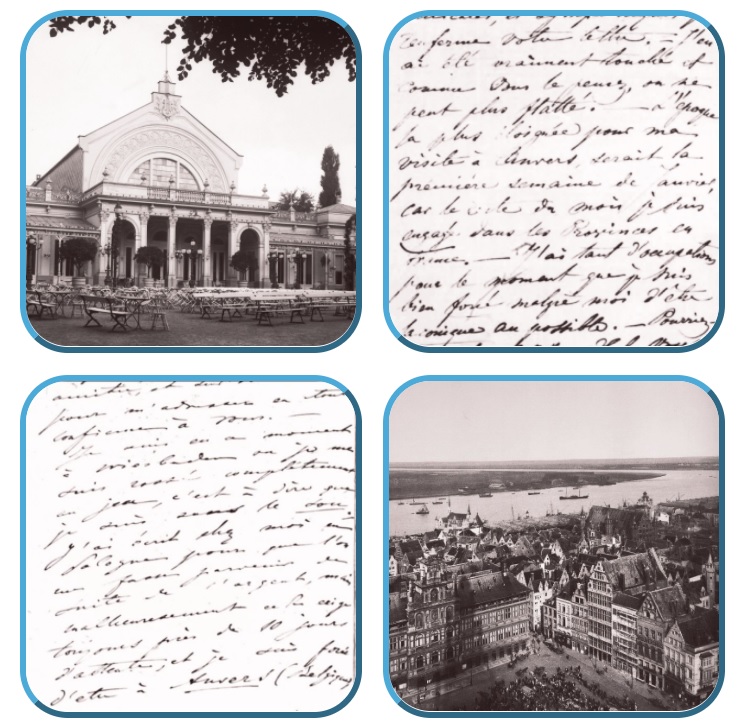 renferme votre lettre. — J'en
ai été vraiment touché et
comme vous le pensez, on ne
peut plus flatté. — à l'époque
la plus éloignée pour ma
visite à Anvers, serait la
première semaine de
car le du mois je suis
engagé dans les Provinces en
— J'ai tant d'occupations
pour le moment que je suis
bien forcé malgré moi d'être
laconique au possible. — Pourriez-
pour m'adresser en tout
confiance à vous. —
Je suis en ce moment
à Wiesbaden où je me
suis rossé complètement
au jeu, c'est à dire que
je suis sans le sou.
J'ai écrit chez moi en
Pologne pour que l'on
me fasse parvenir de
suite de l'argent, mais
malheureusement cela exige
toujours près de 10 jours
d'attente, et je suis forcé
d'être à Anvers (Belgique